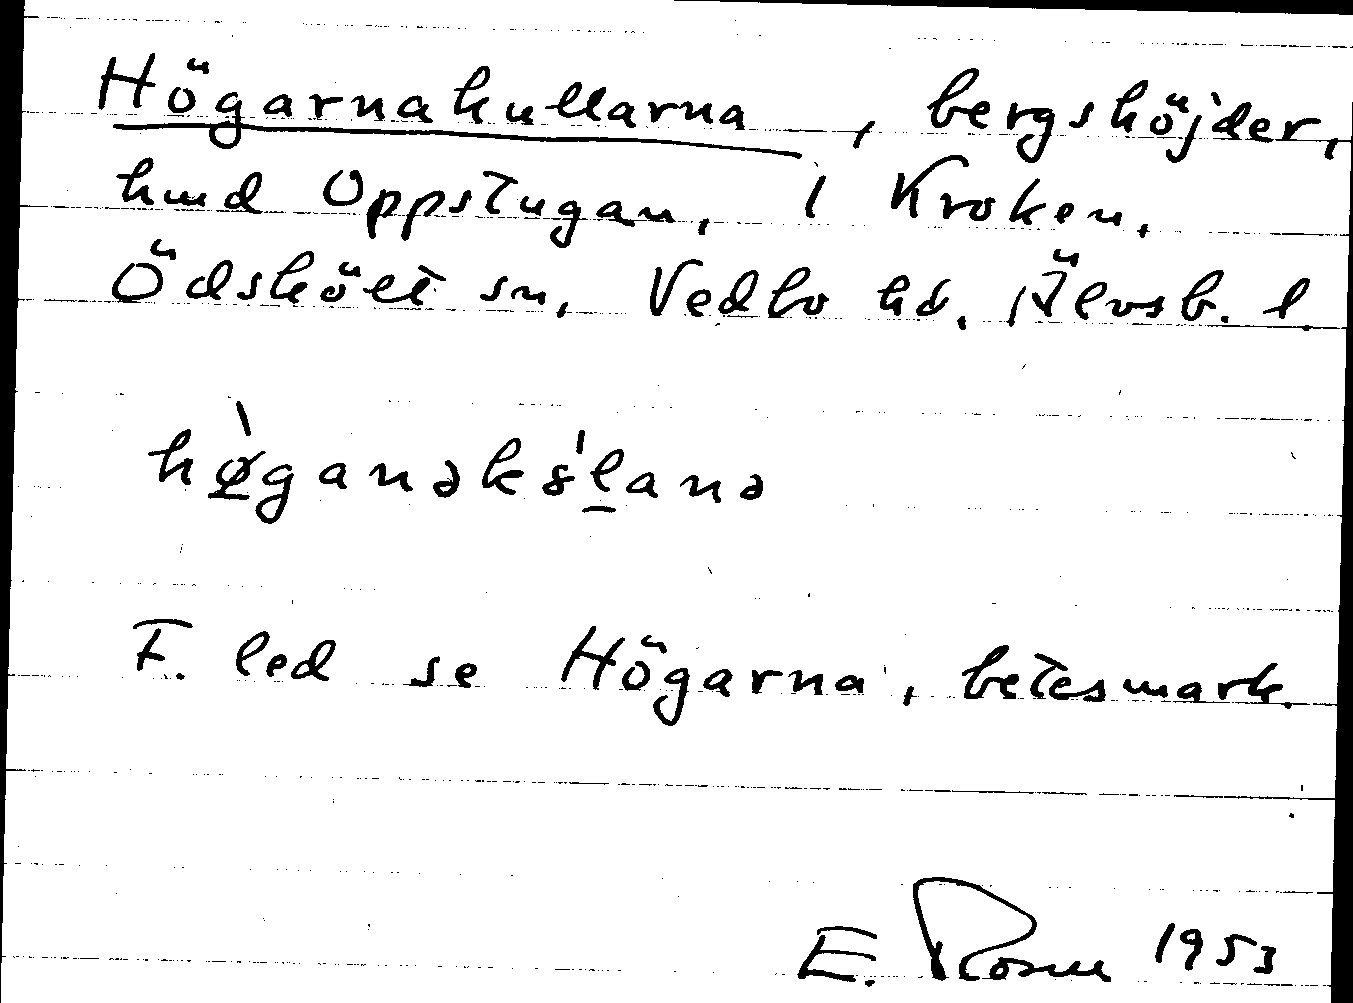 Högarnakullarna, bergshöjder,
hmd Uppstugan, 1 Kroken,
Ödsköelt sn, Vedbo hd. Älvsb. l.
hø̀ganəks'lanə
F. led se Högarna, betesmark.
E. Rosell 1953